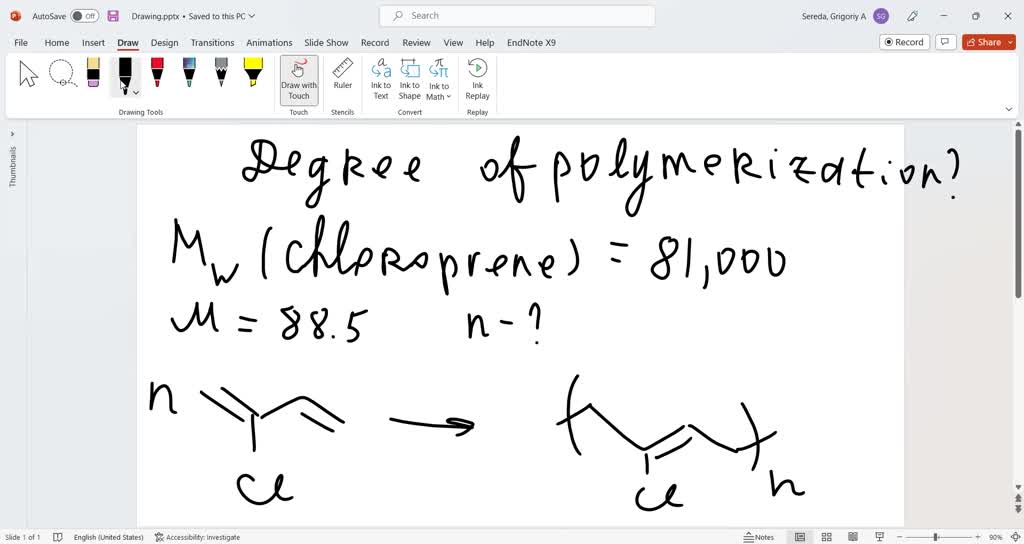 AutoSave Off Drawing.pptx • Saved to this PC Search Sereda, Grigoriy A SG
File Home Insert Draw Design Transitions Animations Slide Show Record Review View Help EndNote X9 Record Share
Draw with Touch Ruler Ink to Text Ink to Shape Ink to Math Ink Replay
Drawing Tools Touch Stencils Convert Replay
Thumbnails
Degree of polymerization?
Mw (chloroprene) = 81,000
M = 88.5 n - ?
n
Cl Cl n
Slide 1 of 1 English (United States) Accessibility: Investigate Notes 90%